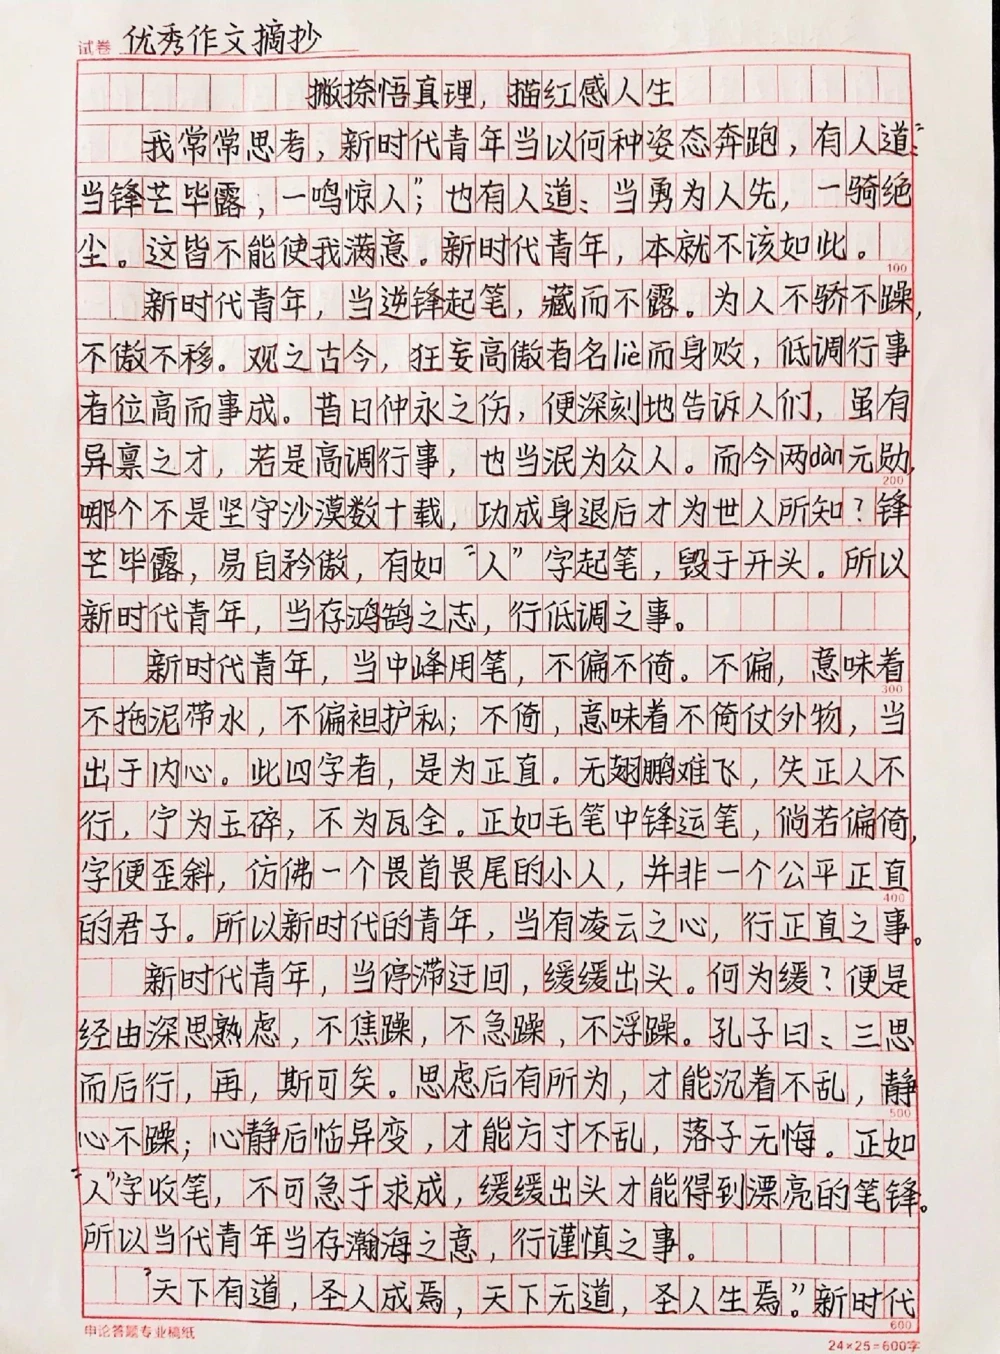 试卷 优秀作文摘抄
撇捺悟真理，描红感人生
我常常思考，新时代青年当以何种姿态奔跑，有人道：“
当锋芒毕露，一鸣惊人”；也有人道：当勇为人先，一骑绝
尘。这皆不能使我满意。新时代青年，本就不该如此。
100
新时代青年，当逆锋起笔，藏而不露。为人不骄不躁，
不傲不移。观之古今，狂妄高傲者名liè而身败，低调行事
者位高而事成。昔日仲永之伤，便深刻地告诉人们，虽有
异禀之才，若是高调行事，也当泯为众人。而今两dàn元勋，
200
哪个不是坚守沙漠数十载，功成身退后才为世人所知？锋
芒毕露，易自矜傲，有如“人”字起笔，毁于开头。所以
新时代青年，当存鸿鹄之志，行低调之事。
新时代青年，当中峰用笔，不偏不倚。不偏，意味着
300
不拖泥带水，不偏袒护私；不倚，意味着不倚仗外物，当
出于内心。此四字者，是为正直。无翅鹏难飞，失正人不
行，宁为玉碎，不为瓦全。正如毛笔中锋运笔，倘若偏倚，
字便歪斜，仿佛一个畏首畏尾的小人，并非一个公平正直
400
的君子。所以新时代的青年，当有凌云之心，行正直之事。
新时代青年，当停滞迂回，缓缓出头。何为缓？便是
经由深思熟虑，不焦躁，不急躁，不浮躁。孔子曰：三思
而后行，再，斯可矣。思虑后有所为，才能沉着不乱，静
500
心不躁；心静后临异变，才能方寸不乱，落子无悔。正如
“人”字收笔，不可急于求成，缓缓出头才能得到漂亮的笔锋。
所以当代青年当存瀚海之意，行谨慎之事。
“天下有道，圣人成焉，天下无道，圣人生焉。”新时代
600
申论答题专业稿纸
24×25=600字